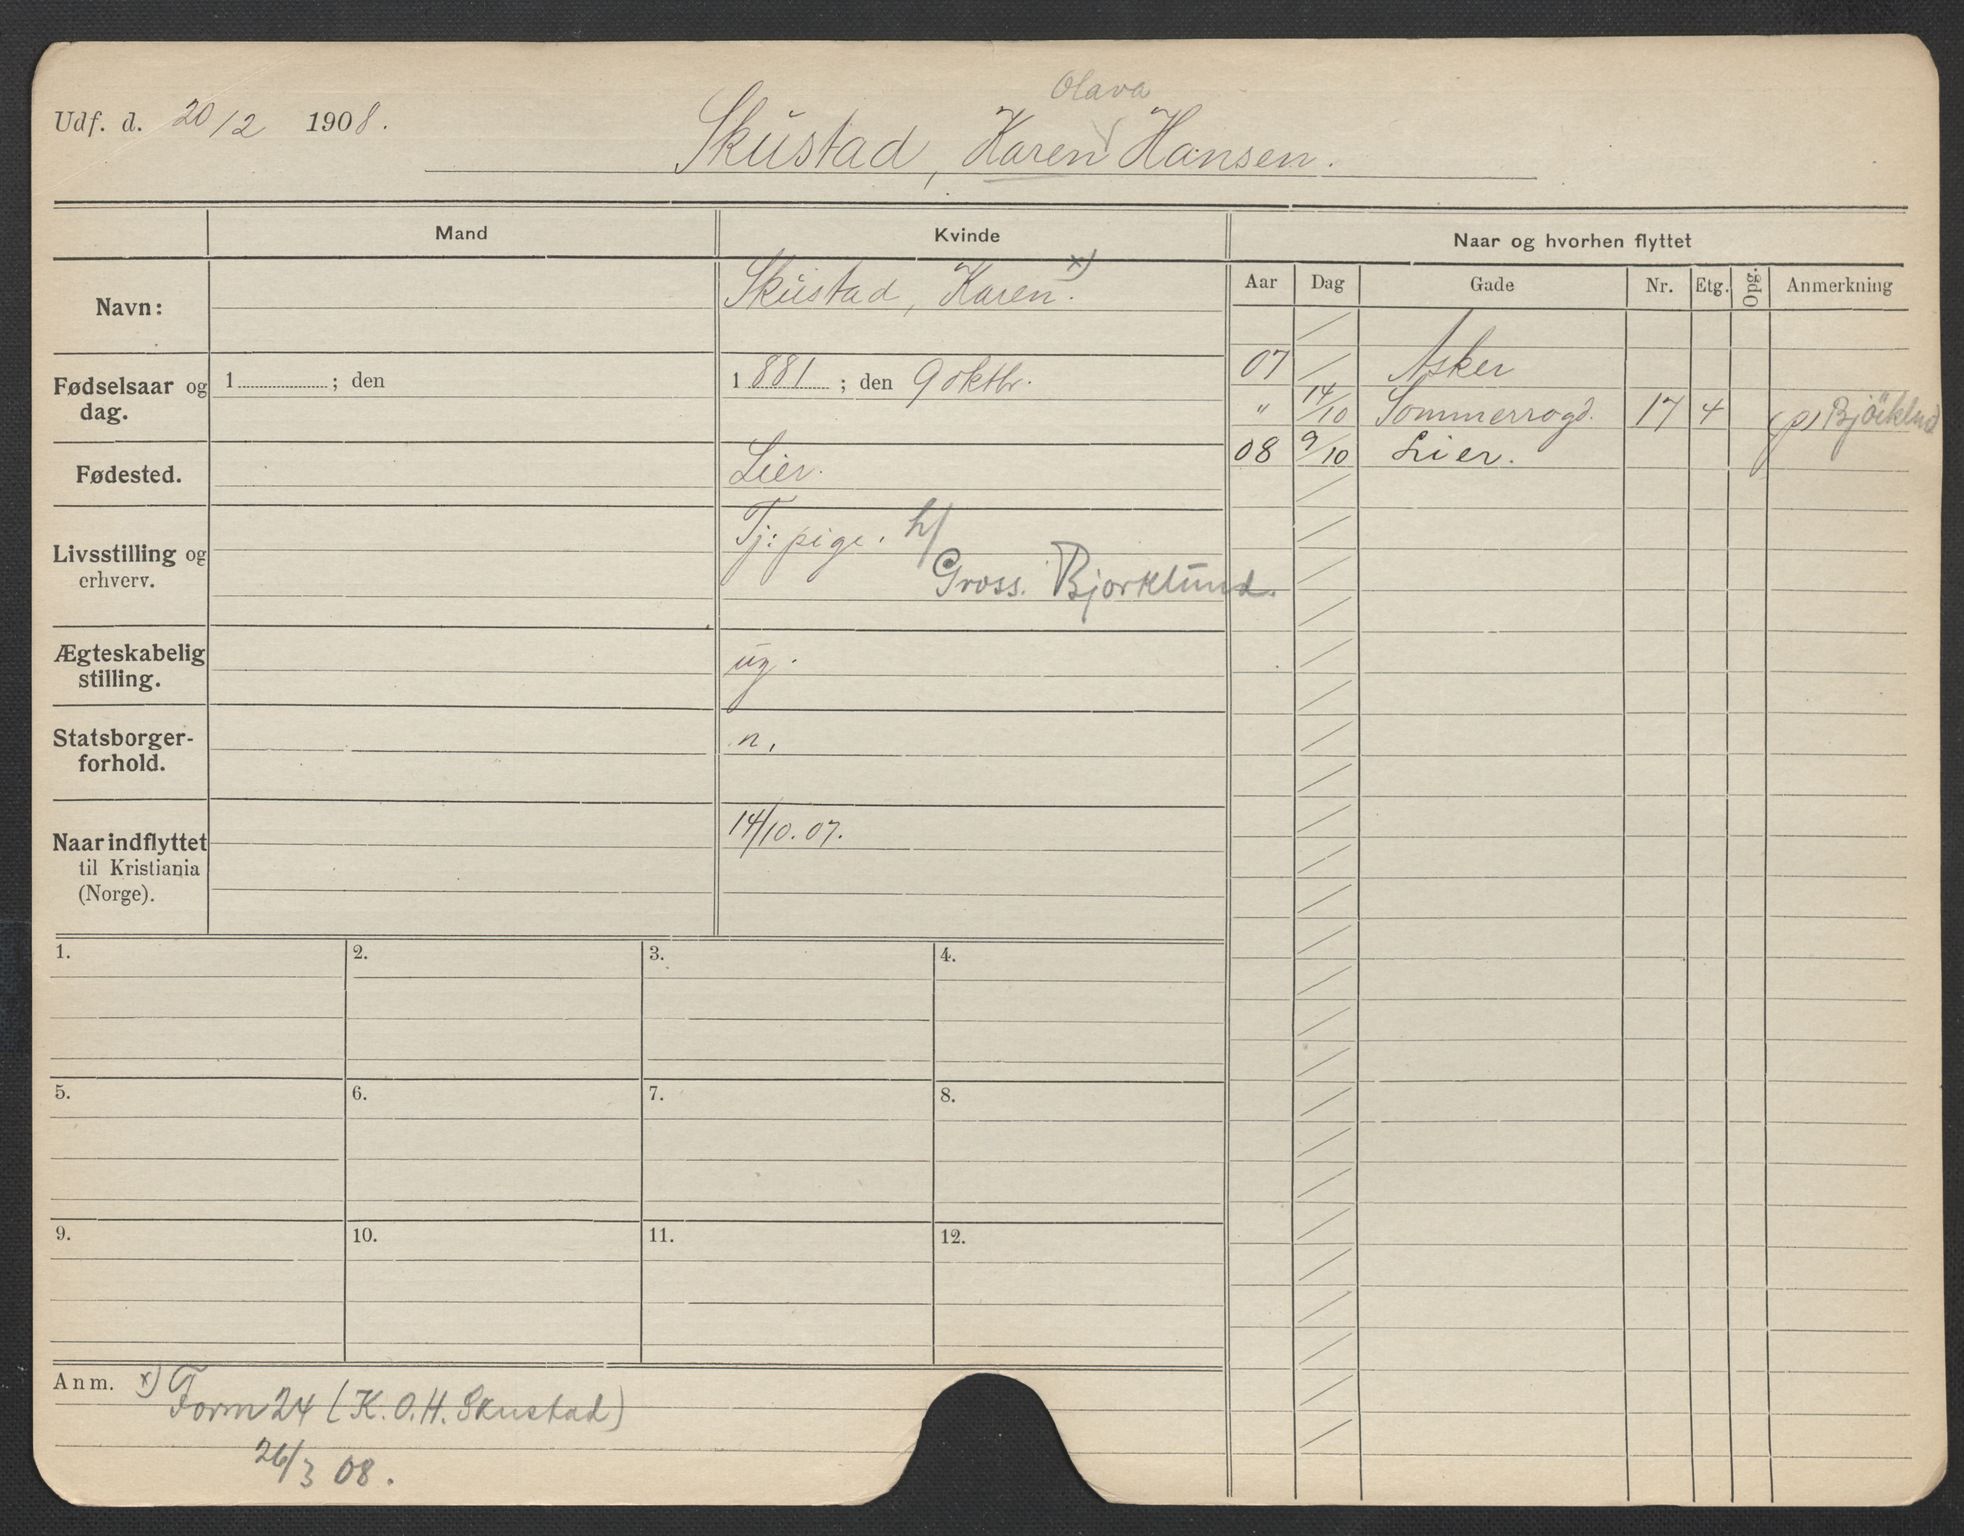 Olava
Udf. d. 20/12 1908.
Skustad, Karen Hansen.
Mand
Kvinde
Naar og hvorhen flyttet
Aar Dag Gade Nr. Etg. Opg. Anmerkning
Navn:
Skustad, Karen x).
Fødselsaar og dag.
1 ; den
1881 ; den 9 oktbr.
Fødested.
Lier.
Livsstilling og
erhverv.
Tj: pige. h/
Gross. Bjorklund.
Ægteskabelig
stilling.
ug.
Statsborger-
forhold.
n.
Naar indflyttet
til Kristiania
(Norge).
14/10.07.
07 / Asker
" 14/10 Sommerrogd. 17 4 (p) Bjöiklund
08 9/10 Lier.
1. 2. 3. 4.
5. 6. 7. 8.
9. 10. 11. 12.
Anm. x) Form 24 (K.O.H. Skustad)
26/3 08.